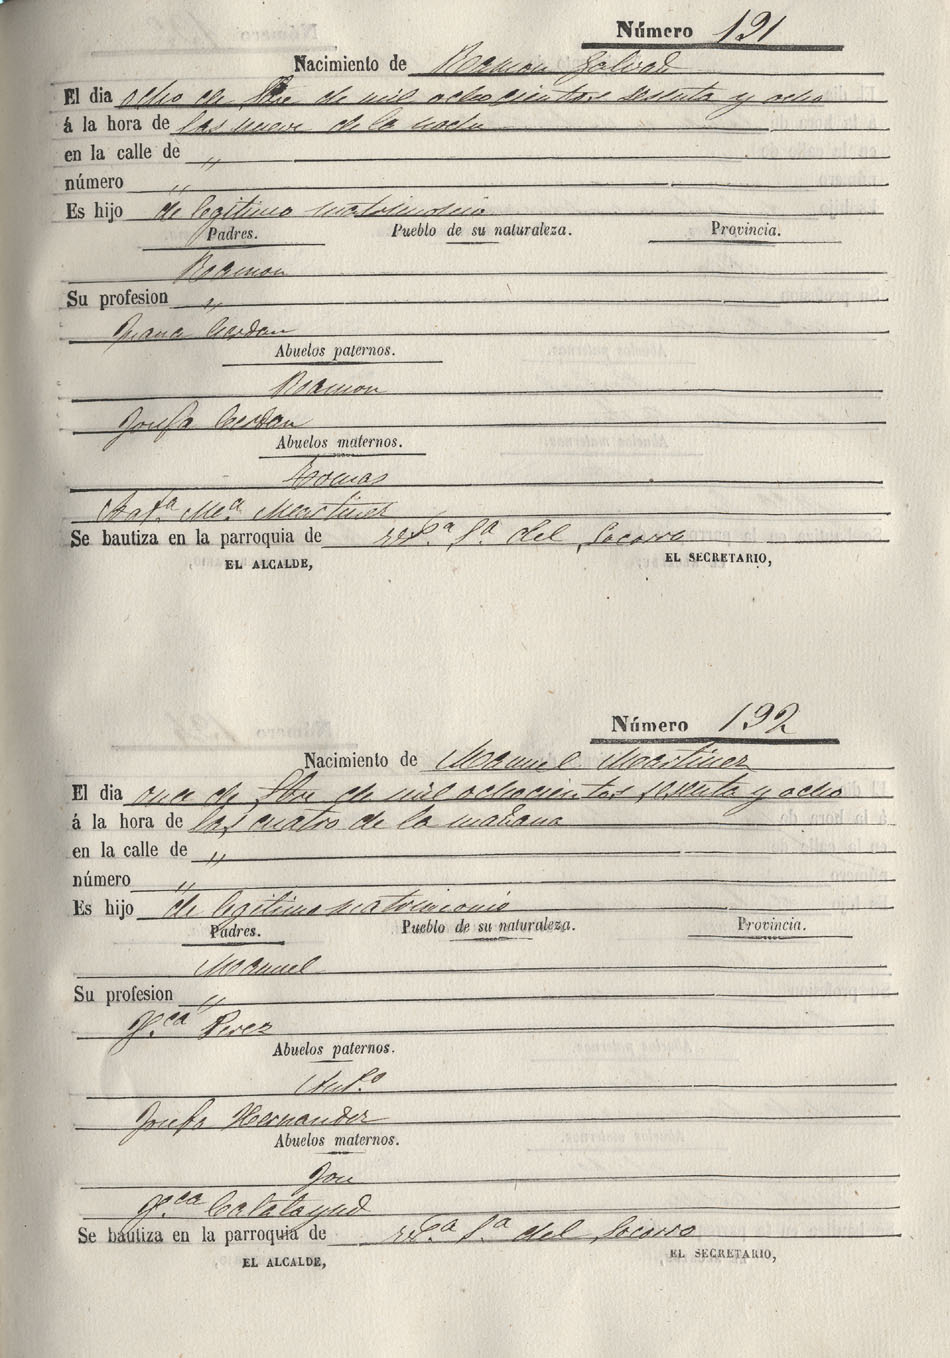 Número 191
Nacimiento de Ramon Galvañ
El dia ocho de Sbre de mil ochocientos sesenta y ocho
á la hora de las nueve de la noche
en la calle de "
número "
Es hijo de legitimo matrimonio
Padres. Pueblo de su naturaleza. Provincia.
Ramon
Su profesion "
Juana Cerdan
Abuelos paternos.
Ramon
Josefa Cerdan
Abuelos maternos.
Tomas
Mª Martinez
Se bautiza en la parroquia de Sª del Socorro
EL ALCALDE, EL SECRETARIO,
Número 192
Nacimiento de Manuel Martinez
El dia once de Sbre de mil ochocientos sesenta y ocho
á la hora de las cuatro de la mañana
en la calle de "
número "
Es hijo de legitimo matrimonio
Padres. Pueblo de su naturaleza. Provincia.
Manuel
Su profesion "
Fca Perez
Abuelos paternos.
Anto
Josefa Hernandez
Abuelos maternos.
Jose
Fca Calatayud
Se bautiza en la parroquia de Sª del Socorro
EL ALCALDE, EL SECRETARIO,